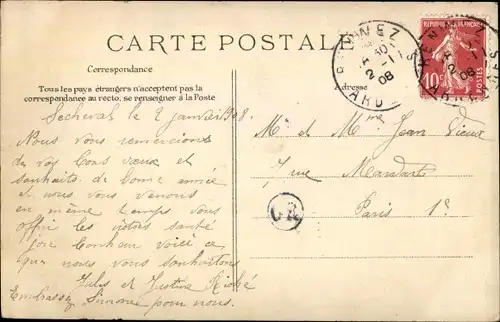 CARTE POSTALE
Correspondance
Tous les pays étrangers n'acceptent pas la
correspondance au recto, se renseigner à la Poste
Adresse
RENWEZ
2 - 1
08
ARD
RENWEZ
2 - 1
08
ARD
REPUBLIQUE FRANÇAISE
10c
POSTES
Secheval le 2 janvier 1908
Nous vous remercions
de vos bons vœux et
souhaits de bonne année
et nous vous venons
en même temps vous
offrir les nôtres santé
joie bonheur voilà ce
que nous vous souhaitons
Jules et Justine
Embrassez Simone pour nous.
Mr et Mme Jean Vieux
7 rue Mandar
Paris 1e